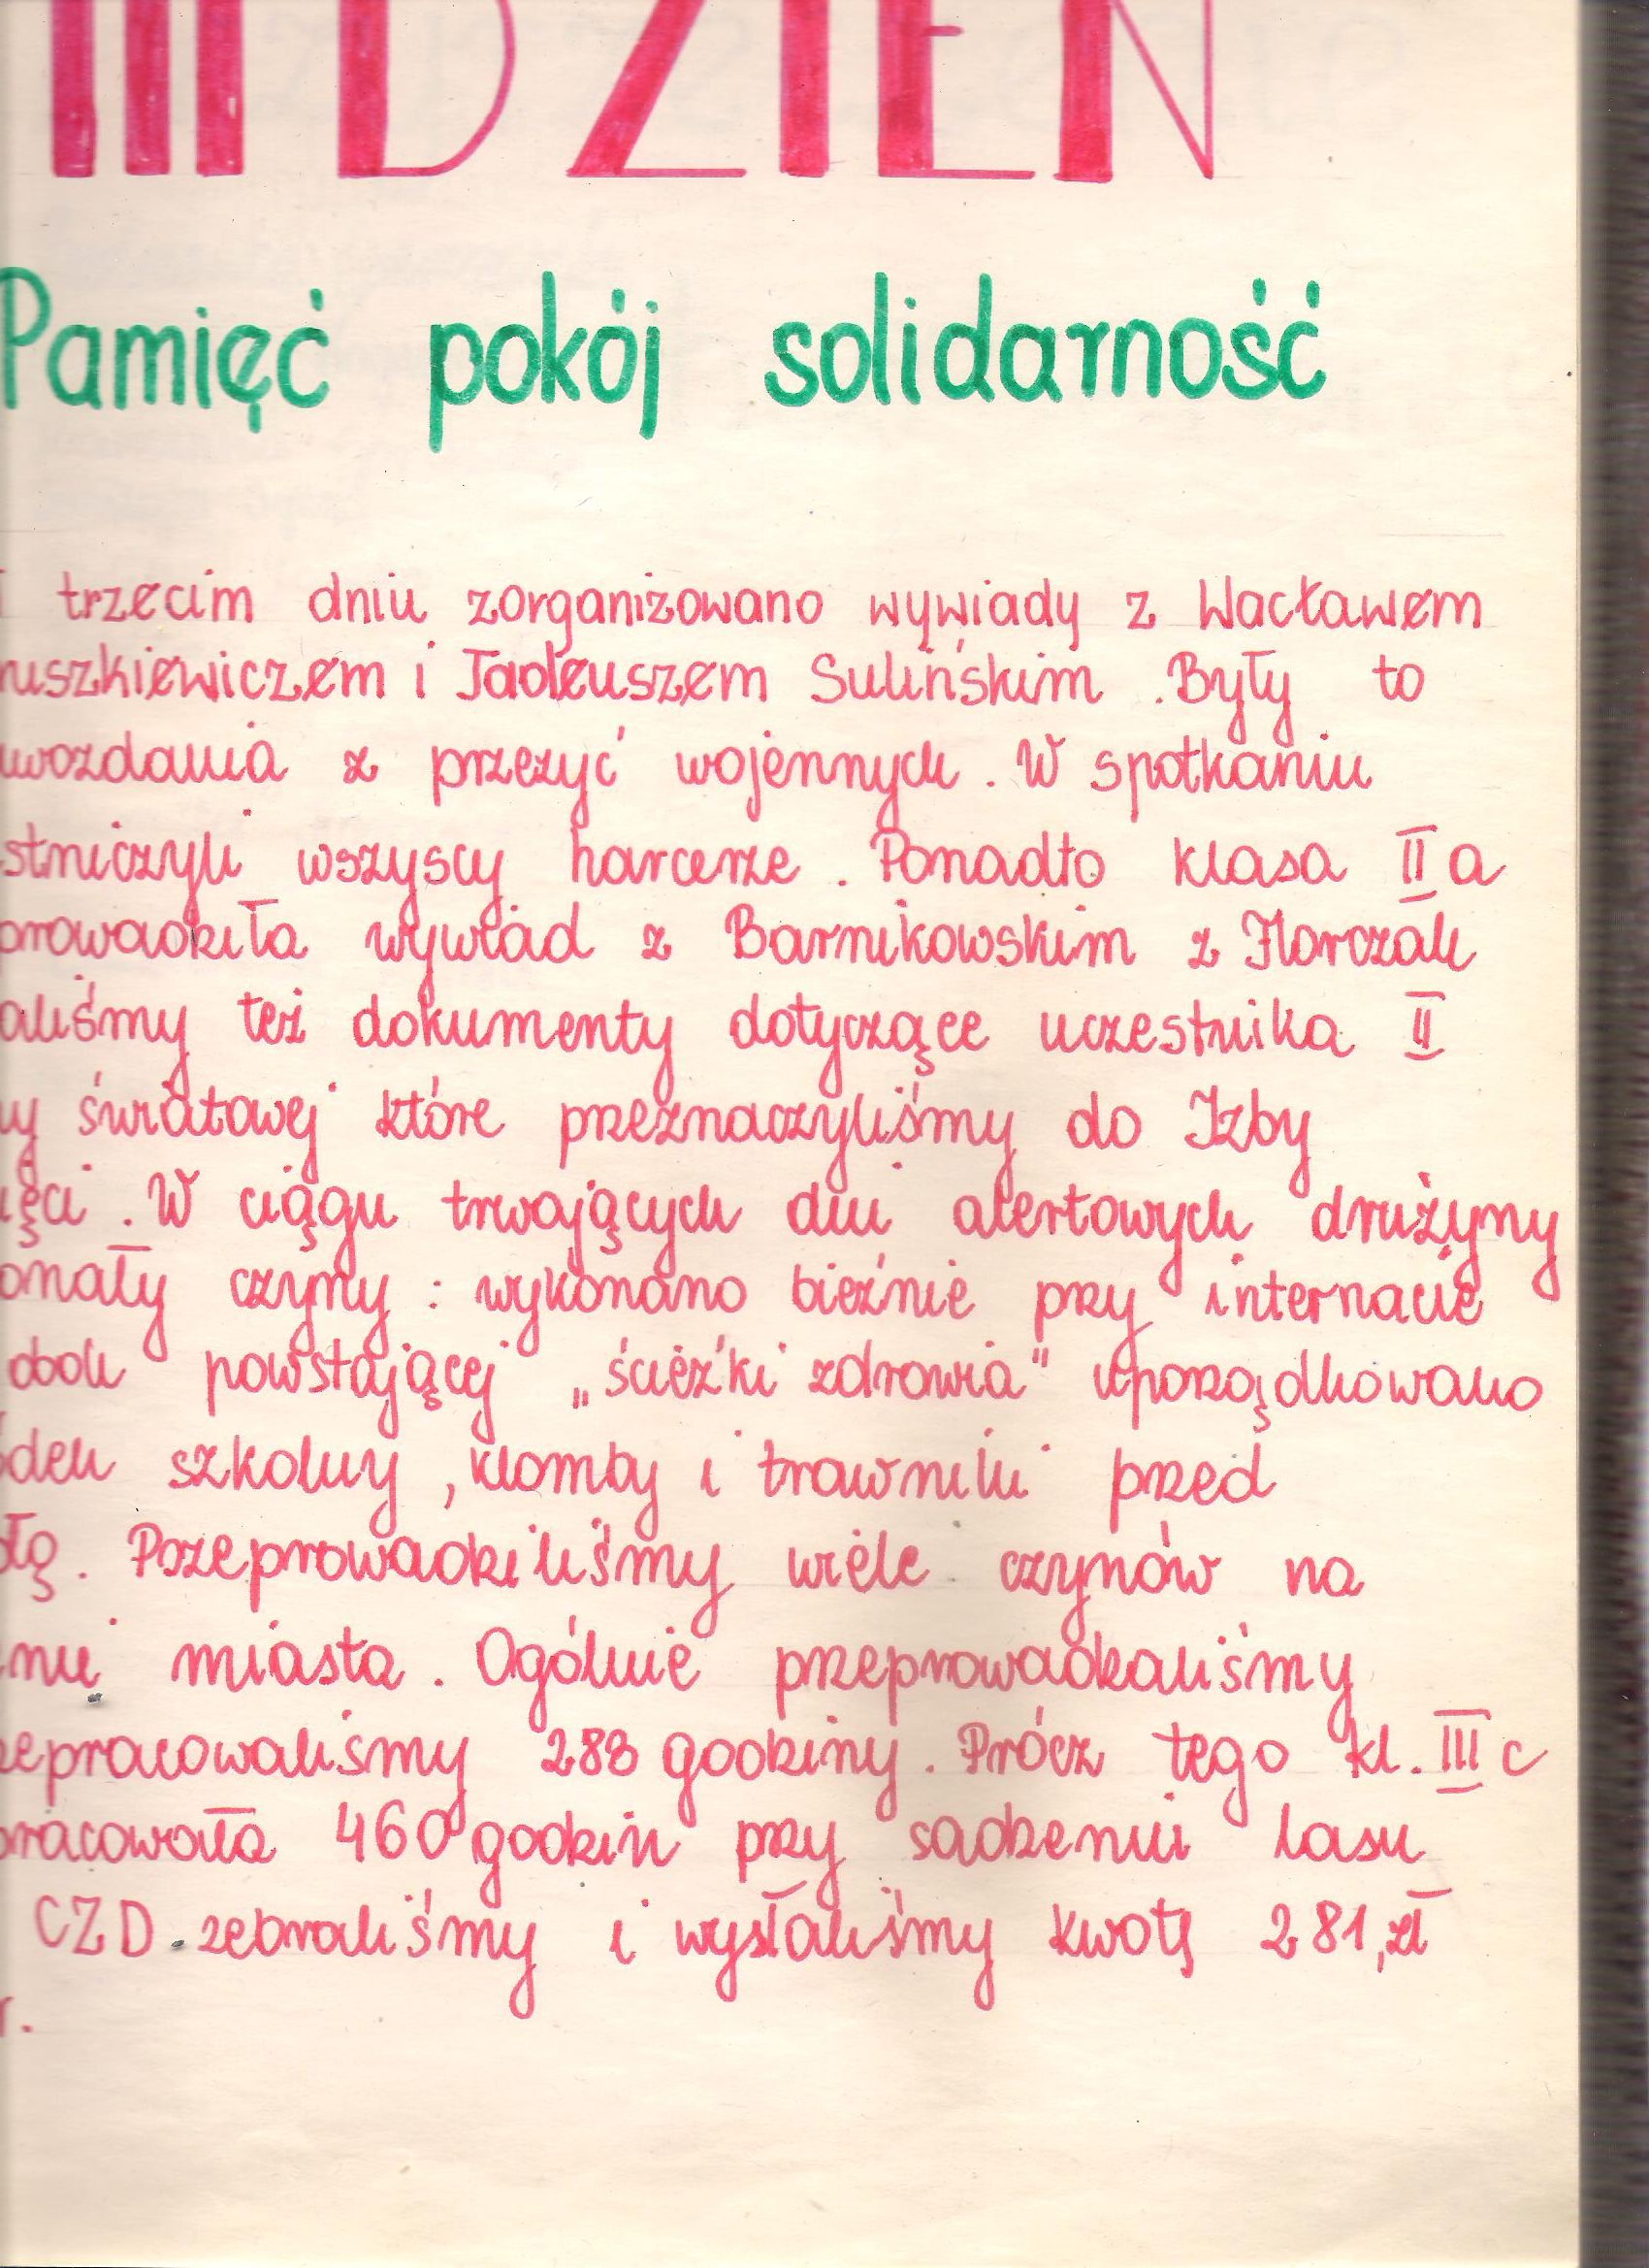 III DZIEŃ
Pamięć pokój solidarność
trzecim dniu zorganizowano wywiady z Wacławem
uszkiewiczem i Tadeuszem Sulińskim . Były to
wozdania z przeżyć wojennych . W spotkaniu
stniczyli wszyscy harcerze . Ponadto klasa II a
prowadziła wywiad z Barnikowskim z Florczak
aliśmy też dokumenty dotyczące uczestnika II
ny światowej które przeznaczyliśmy do Izby
ięci . W ciągu trwających dni alertowych drużyny
onały czyny : wykonano bieżnie przy internacie
obok powstającej „ścieżki zdrowia" uporządkowano
ódek szkolny , klomby i trawniki przed
łą . Przeprowadziliśmy wiele czynów na
nie miasta . Ogólnie przeprowadzaliśmy
zepracowaliśmy 288 godziny . Prócz tego kl. III c
pracowała 460 godzin przy sadzeniu lasu
CZD . zebraliśmy i wysłaliśmy kwotę 281,zł
r.